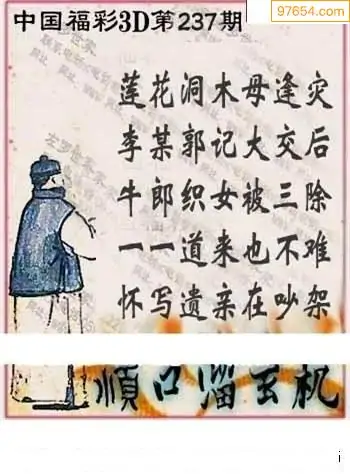 97654.com
中国福彩3D第237期
莲花洞木母逢灾
李某郭记大交后
牛郎织女被三除
一一道来也不难
怀写遗亲在吵架
順口溜玄机
i